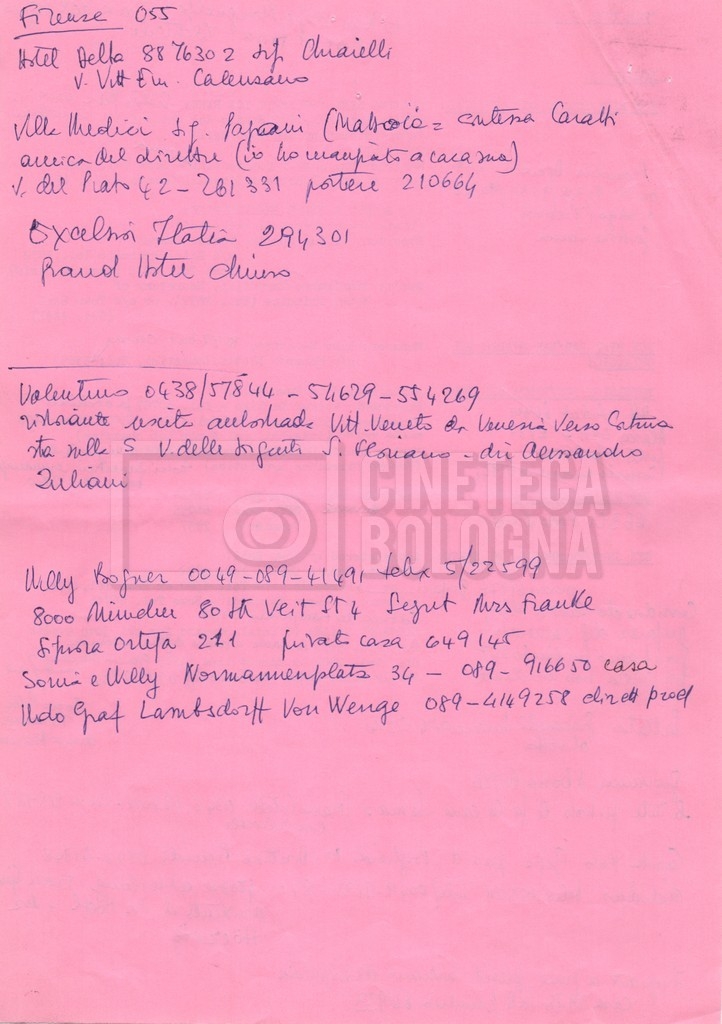 Firenze 055
Hotel Delta 8876302 Sig. Chiarelli
V. Vitt Em. Calenzano
Villa Medici Sig. (= contessa Caratti
amica del direttore (io ho mangiato a casa sua)
V. del Prato 42 - 261331 portiere 210664
Excelsior Italia 294301
Grand Hotel chiuso
Valentino 0438/57844 - 54629 - 554269
ristorante uscita autostrada Vitt. Veneto da Venezia verso Cortina
sta sulla S V. delle Sorgenti S. Floriano - dir Alessandro
Zuliani
CINETECA
BOLOGNA
Willy Bogner 0049-089-41491 telex 5/22599
8000 München 80 Skt Veit St 4 Segret Mrs Franke
Signora Ortega 211 privato casa 649145
Sonia e Willy Normannenplatz 34 - 089 - 916650 casa
Udo Graf Lambsdorff Von Wenge 089-4149258 dirett prod